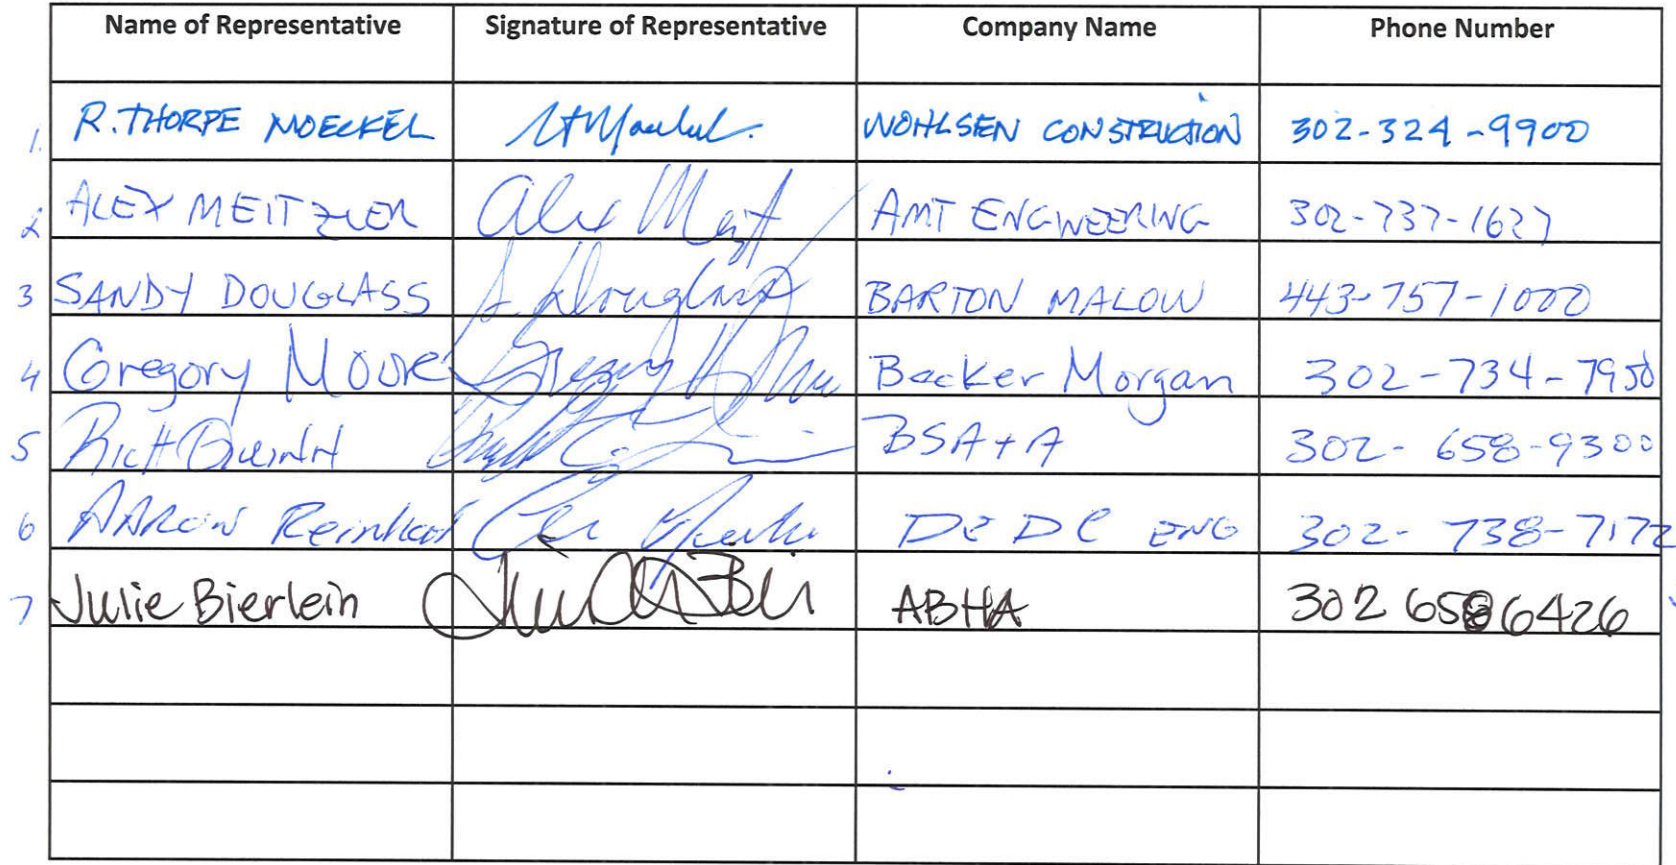 Name of Representative Signature of Representative Company Name Phone Number
1. R. THORPE MOECKEL WOHLSEN CONSTRUCTION 302-324-9900
2 ALEX MEITZLER Alex AMT ENGINEERING 302-737-1627
3 SANDY DOUGLASS S. Douglass BARTON MALOW 443-757-1000
4 Gregory Moore Gregory Moore Becker Morgan 302-734-7950
5 Rich Quinn BSA+A 302-658-9300
6 AARON Reinhart DEDC ENG 302-738-7172
7 Julie Bierlein ABHA 302 658 6426